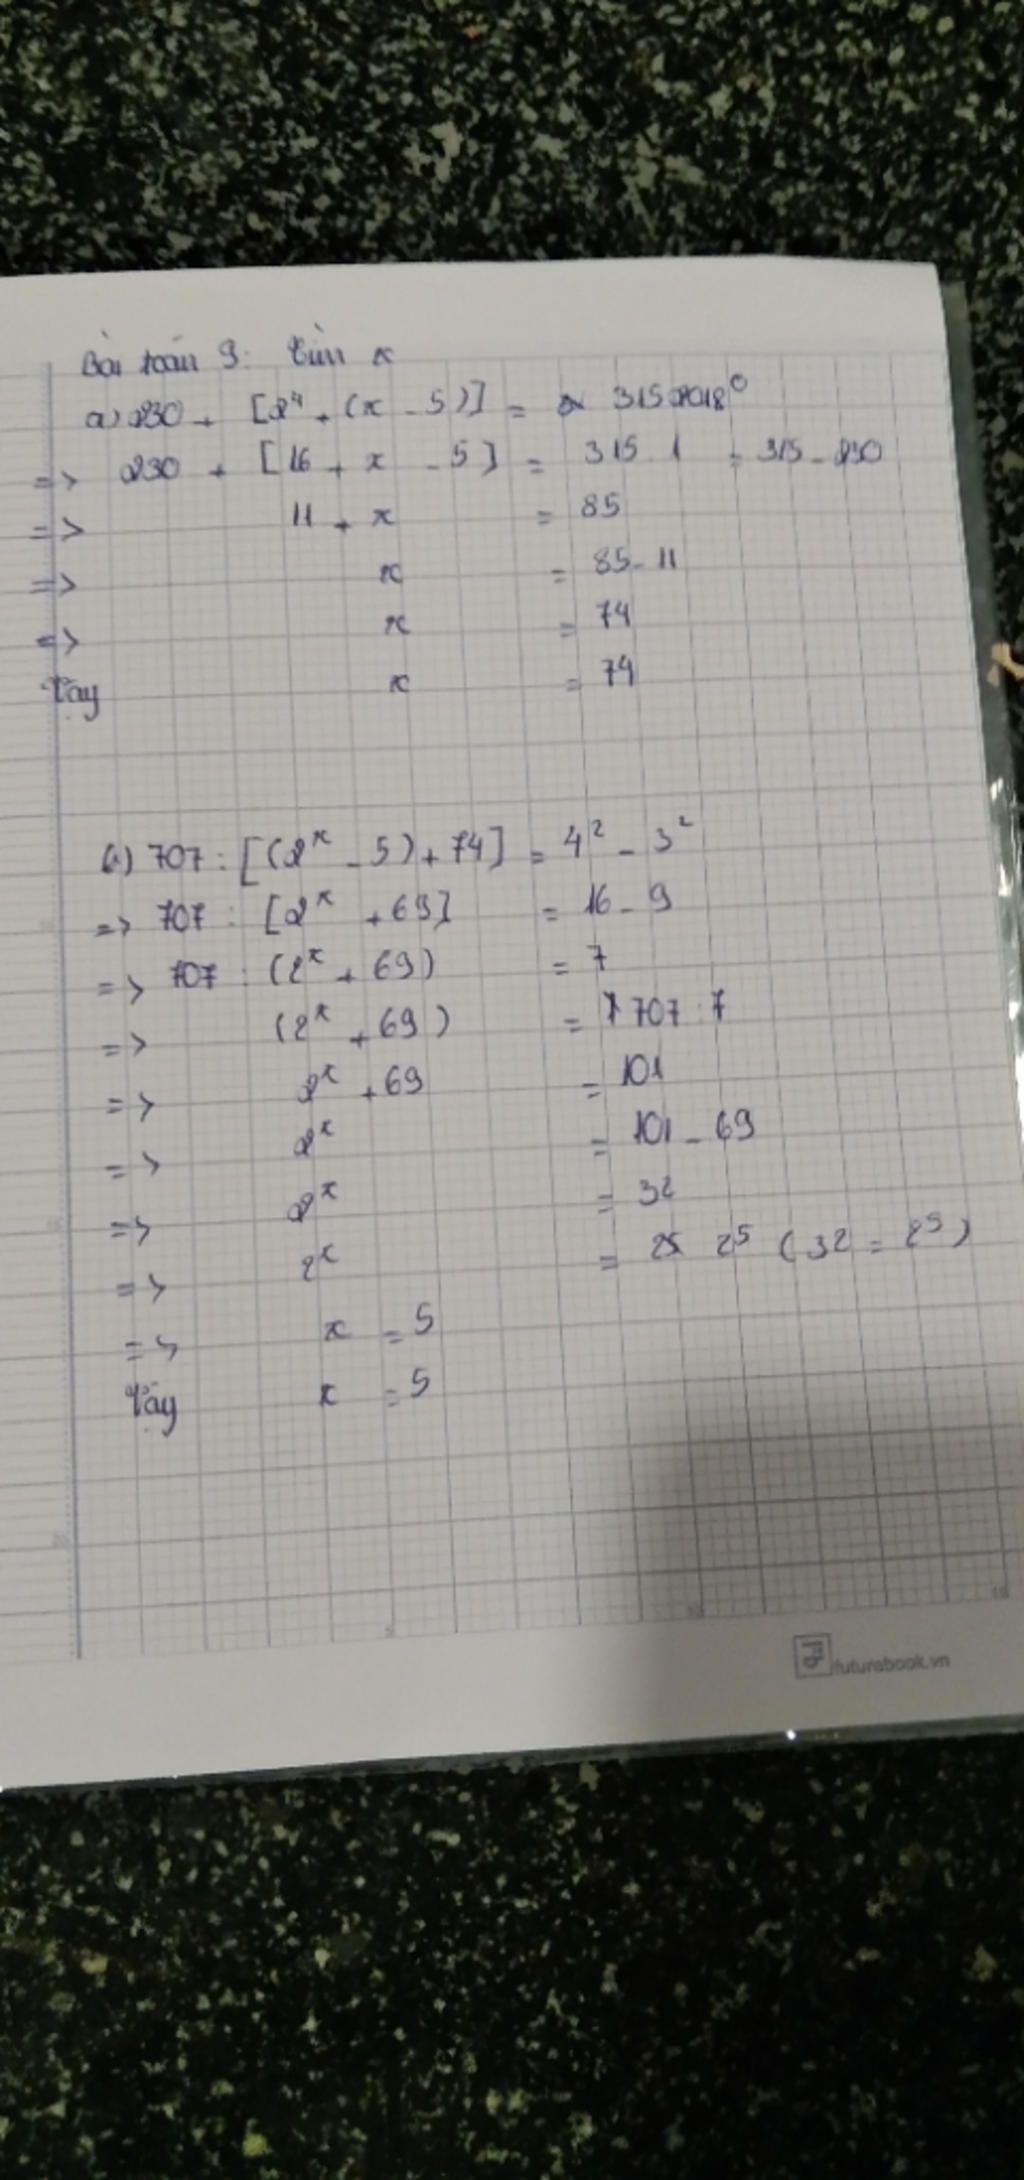 Bài toán 9: Tìm x
a) 230 + [2⁴ + (x - 5)] = 315.2018⁰
=> 230 + [16 + x - 5] = 315.1 = 315 - 230
=> 11 + x = 85
=> x = 85 - 11
=> x = 74
Vậy x = 74
b) 707 : [(2ˣ - 5) + 74] = 4² - 3²
=> 707 : [2ˣ + 69] = 16 - 9
=> 707 : (2ˣ + 69) = 7
=> (2ˣ + 69) = 707 : 7
=> 2ˣ + 69 = 101
=> 2ˣ = 101 - 69
=> 2ˣ = 32
=> 2ˣ = 2⁵ (32 = 2⁵)
=> x = 5
Vậy x = 5
futurebook.vn